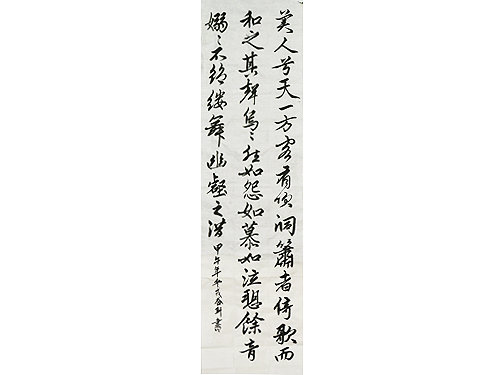 美人兮天一方客有吹洞簫者倚歌而
和之其聲烏〻然如怨如慕如泣聽餘音
嫋〻不絕縷舞幽壑之潛
甲午年 書